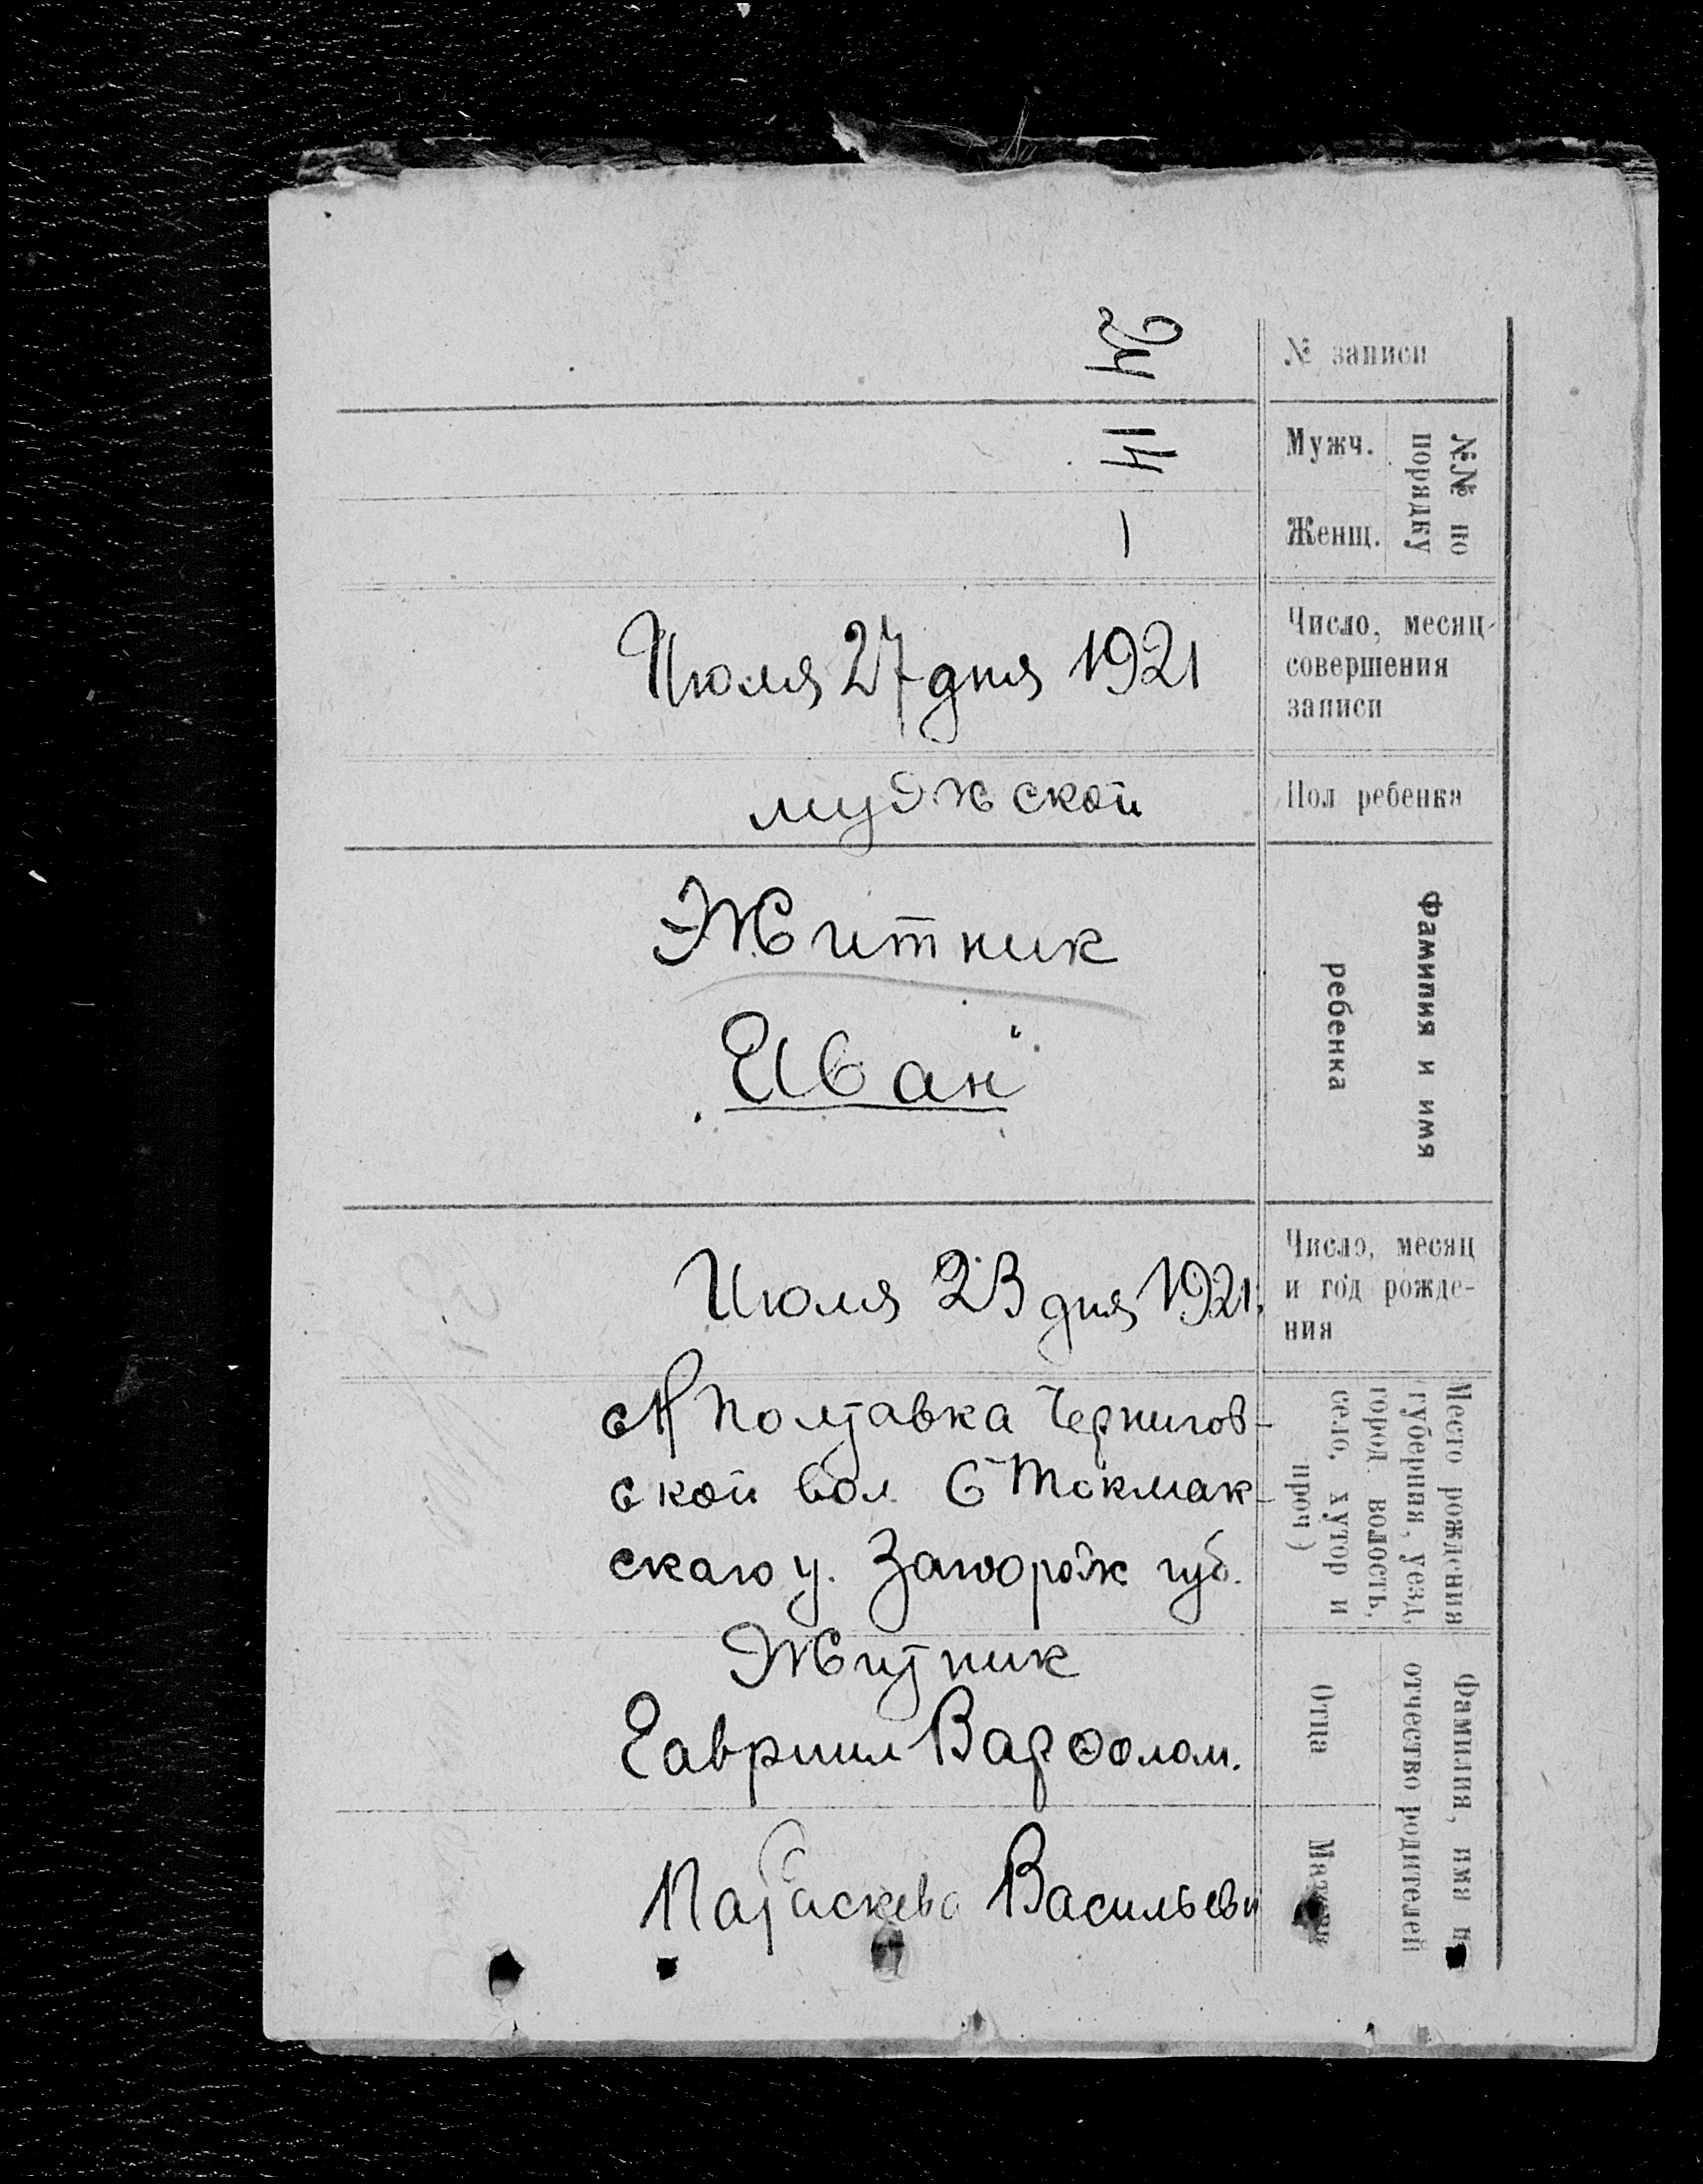 № записи
24
№№ по
порядку
Мужч.
14
Женщ.
—
Число, месяц
совершения
записи
Июля 27 дня 1921
Пол ребенка
мужской
Фамилия и имя
ребенка
Житник
Иван
Число, месяц
и год рожде-
ния
Июля 23 дня 1921.
Место рождения
губерния, уезд,
город. волость,
село, хутор и
проч)
с Н Полтавка Чернигов-
ской вол. Б Токмак-
скаго у. Запорож губ.
Фамилия, имя и
отчество родителей
Отца
Житник
Гавриил Варфолом.
Матери
Параскева Васильевн